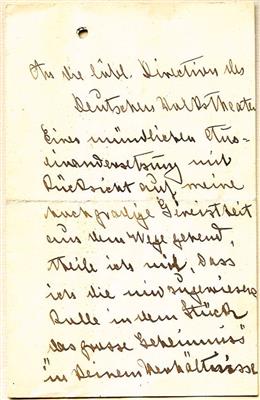 An die löbl. Direction des
Deutschen Volkstheater
Einer mündlichen Aus-
einandersetzung mit
Rücksicht auf meine
hochgradige Gereiztheit
aus dem Wege gehend,
theile ich mit, dass
ich die mir zugewiesene
Rolle in dem Stück
"das grosse Geheimniss"
in keinem Verhältnisse